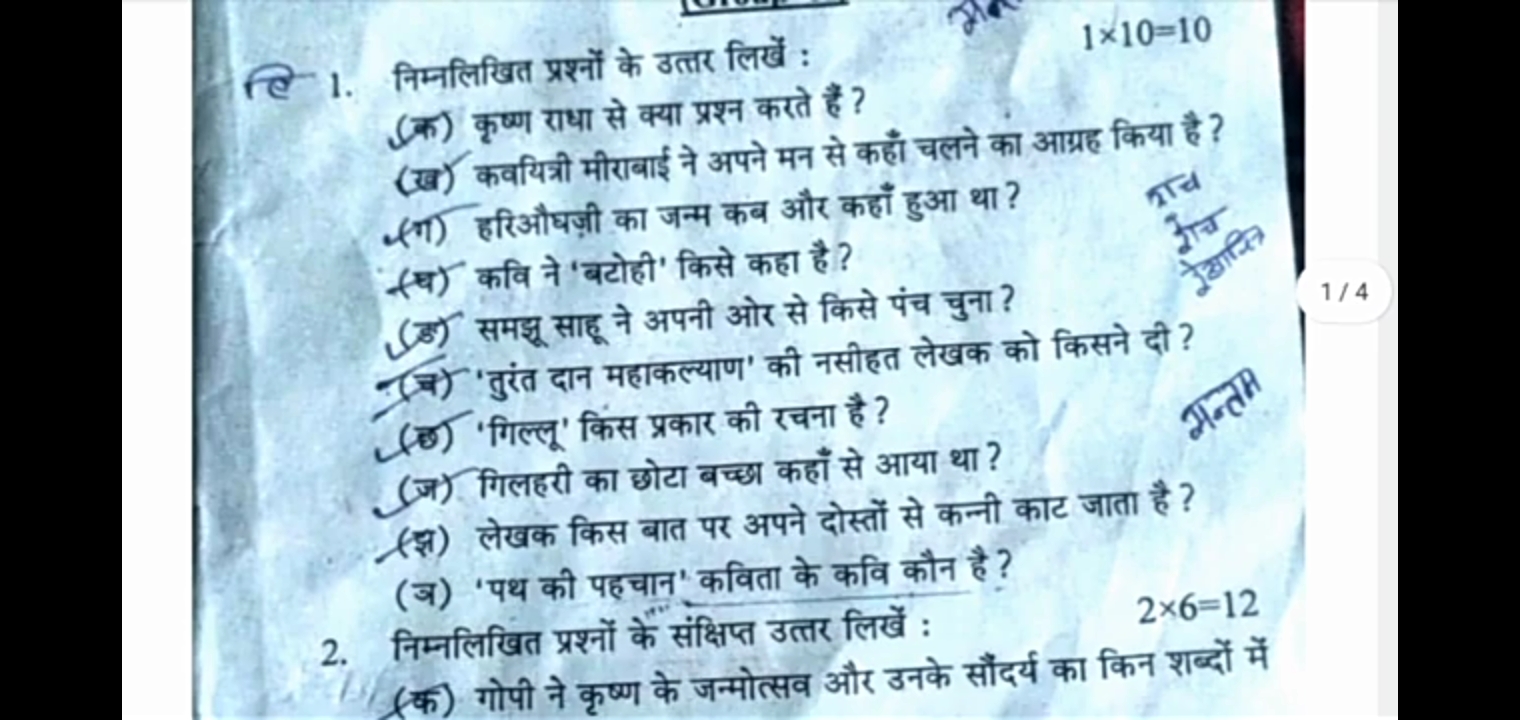 1×10=10
1. निम्नलिखित प्रश्नों के उत्तर लिखें :
(क) कृष्ण राधा से क्या प्रश्न करते हैं ?
(ख) कवयित्री मीराबाई ने अपने मन से कहाँ चलने का आग्रह किया है ?
(ग) हरिऔधज़ी का जन्म कब और कहाँ हुआ था ?
(घ) कवि ने 'बटोही' किसे कहा है ?
(ङ) समझू साहू ने अपनी ओर से किसे पंच चुना ?
(च) 'तुरंत दान महाकल्याण' की नसीहत लेखक को किसने दी ?
(छ) 'गिल्लू' किस प्रकार की रचना है ?
(ज) गिलहरी का छोटा बच्छा कहाँ से आया था ?
(झ) लेखक किस बात पर अपने दोस्तों से कन्नी काट जाता है ?
(ञ) 'पथ की पहचान' कविता के कवि कौन है ?
2×6=12
2. निम्नलिखित प्रश्नों के संक्षिप्त उत्तर लिखें :
(क) गोपी ने कृष्ण के जन्मोत्सव और उनके सौंदर्य का किन शब्दों में
1 / 4